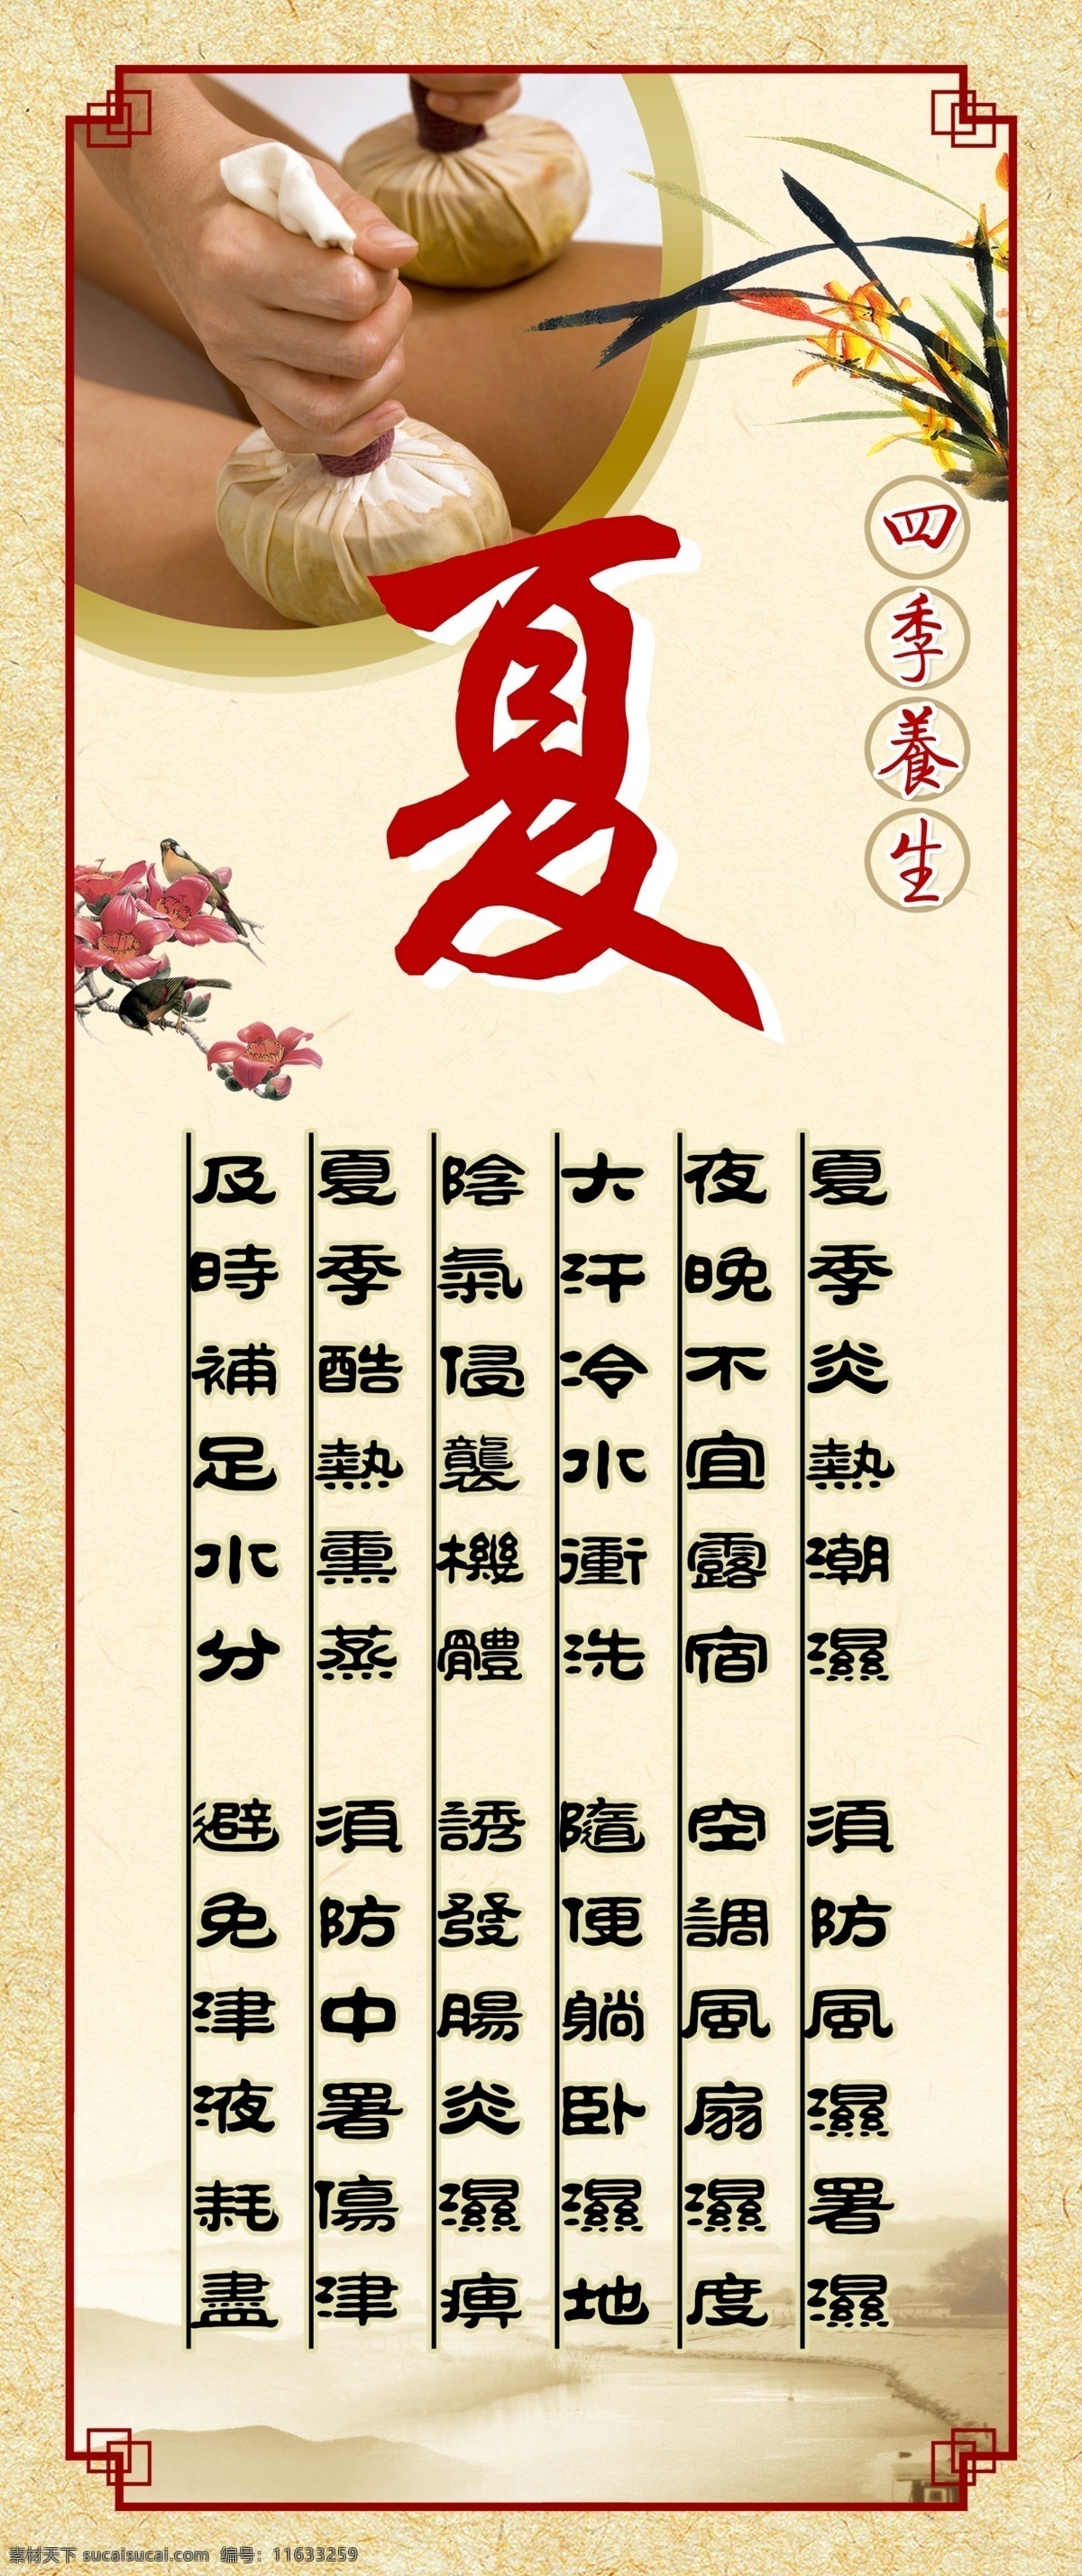 四季養生
夏
夏季炎熱潮濕 須防風濕署濕
夜晚不宜露宿 空調風扇濕度
大汗冷水衝洗 隨便躺卧濕地
陰氣侵襲機體 誘發腸炎濕痹
夏季酷熱熏蒸 須防中署傷津
及時補足水分 避免津液耗盡
素材天下 sucaisucai.com 编号: 11633259